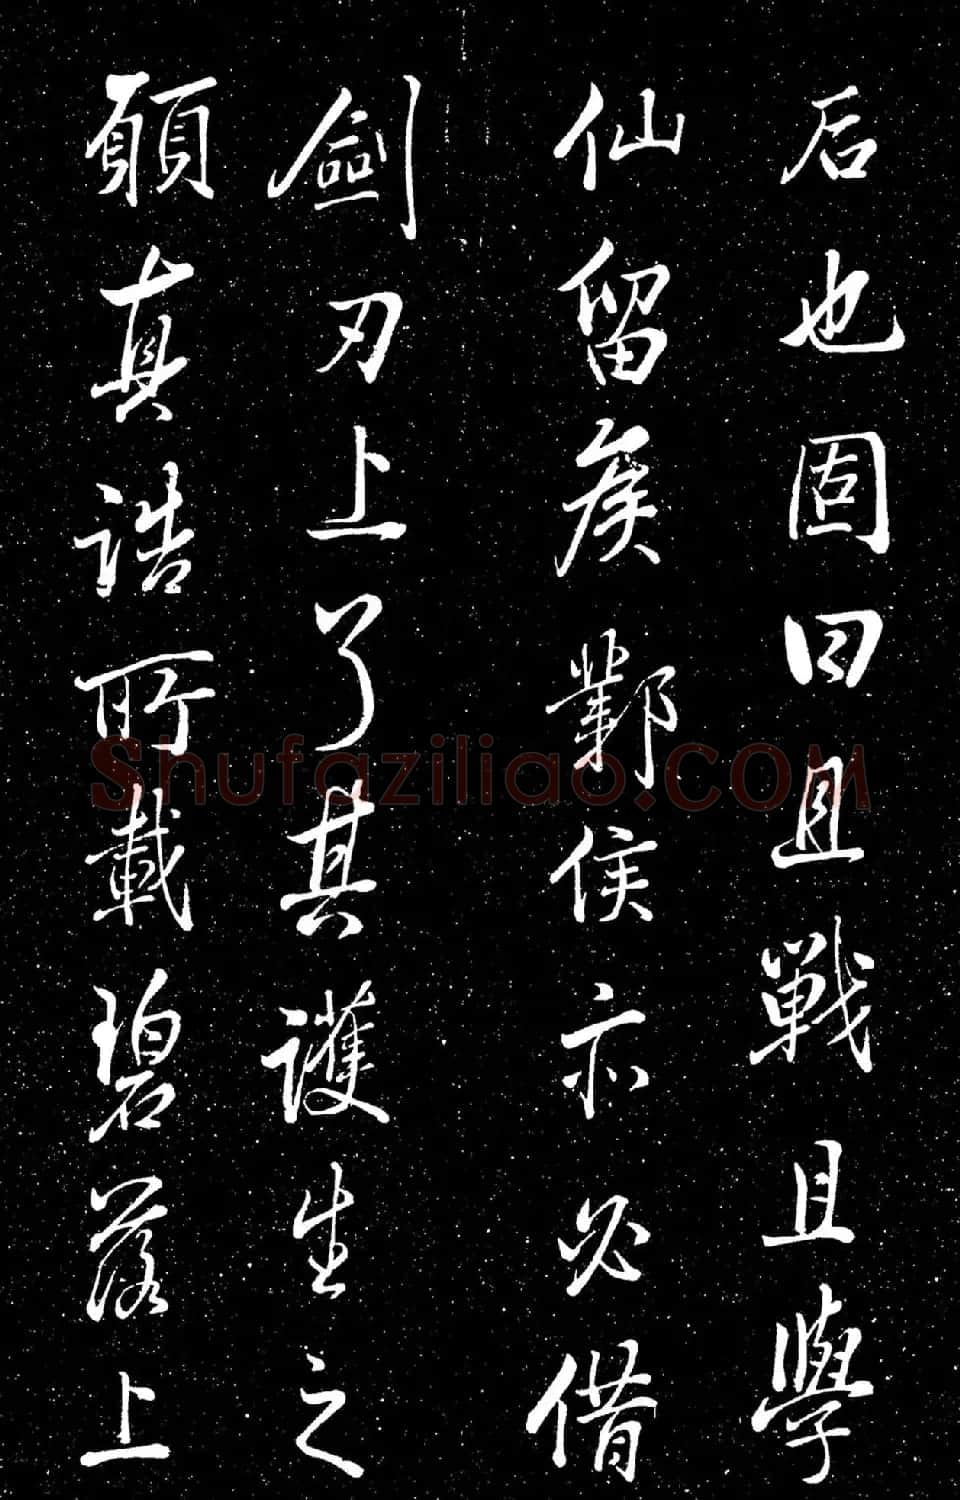 后也固曰且戰且學
仙留矦鄴侯亦必借
劍刃上了其護生之
願真誥所載碧落上
Shufaziliao.COM